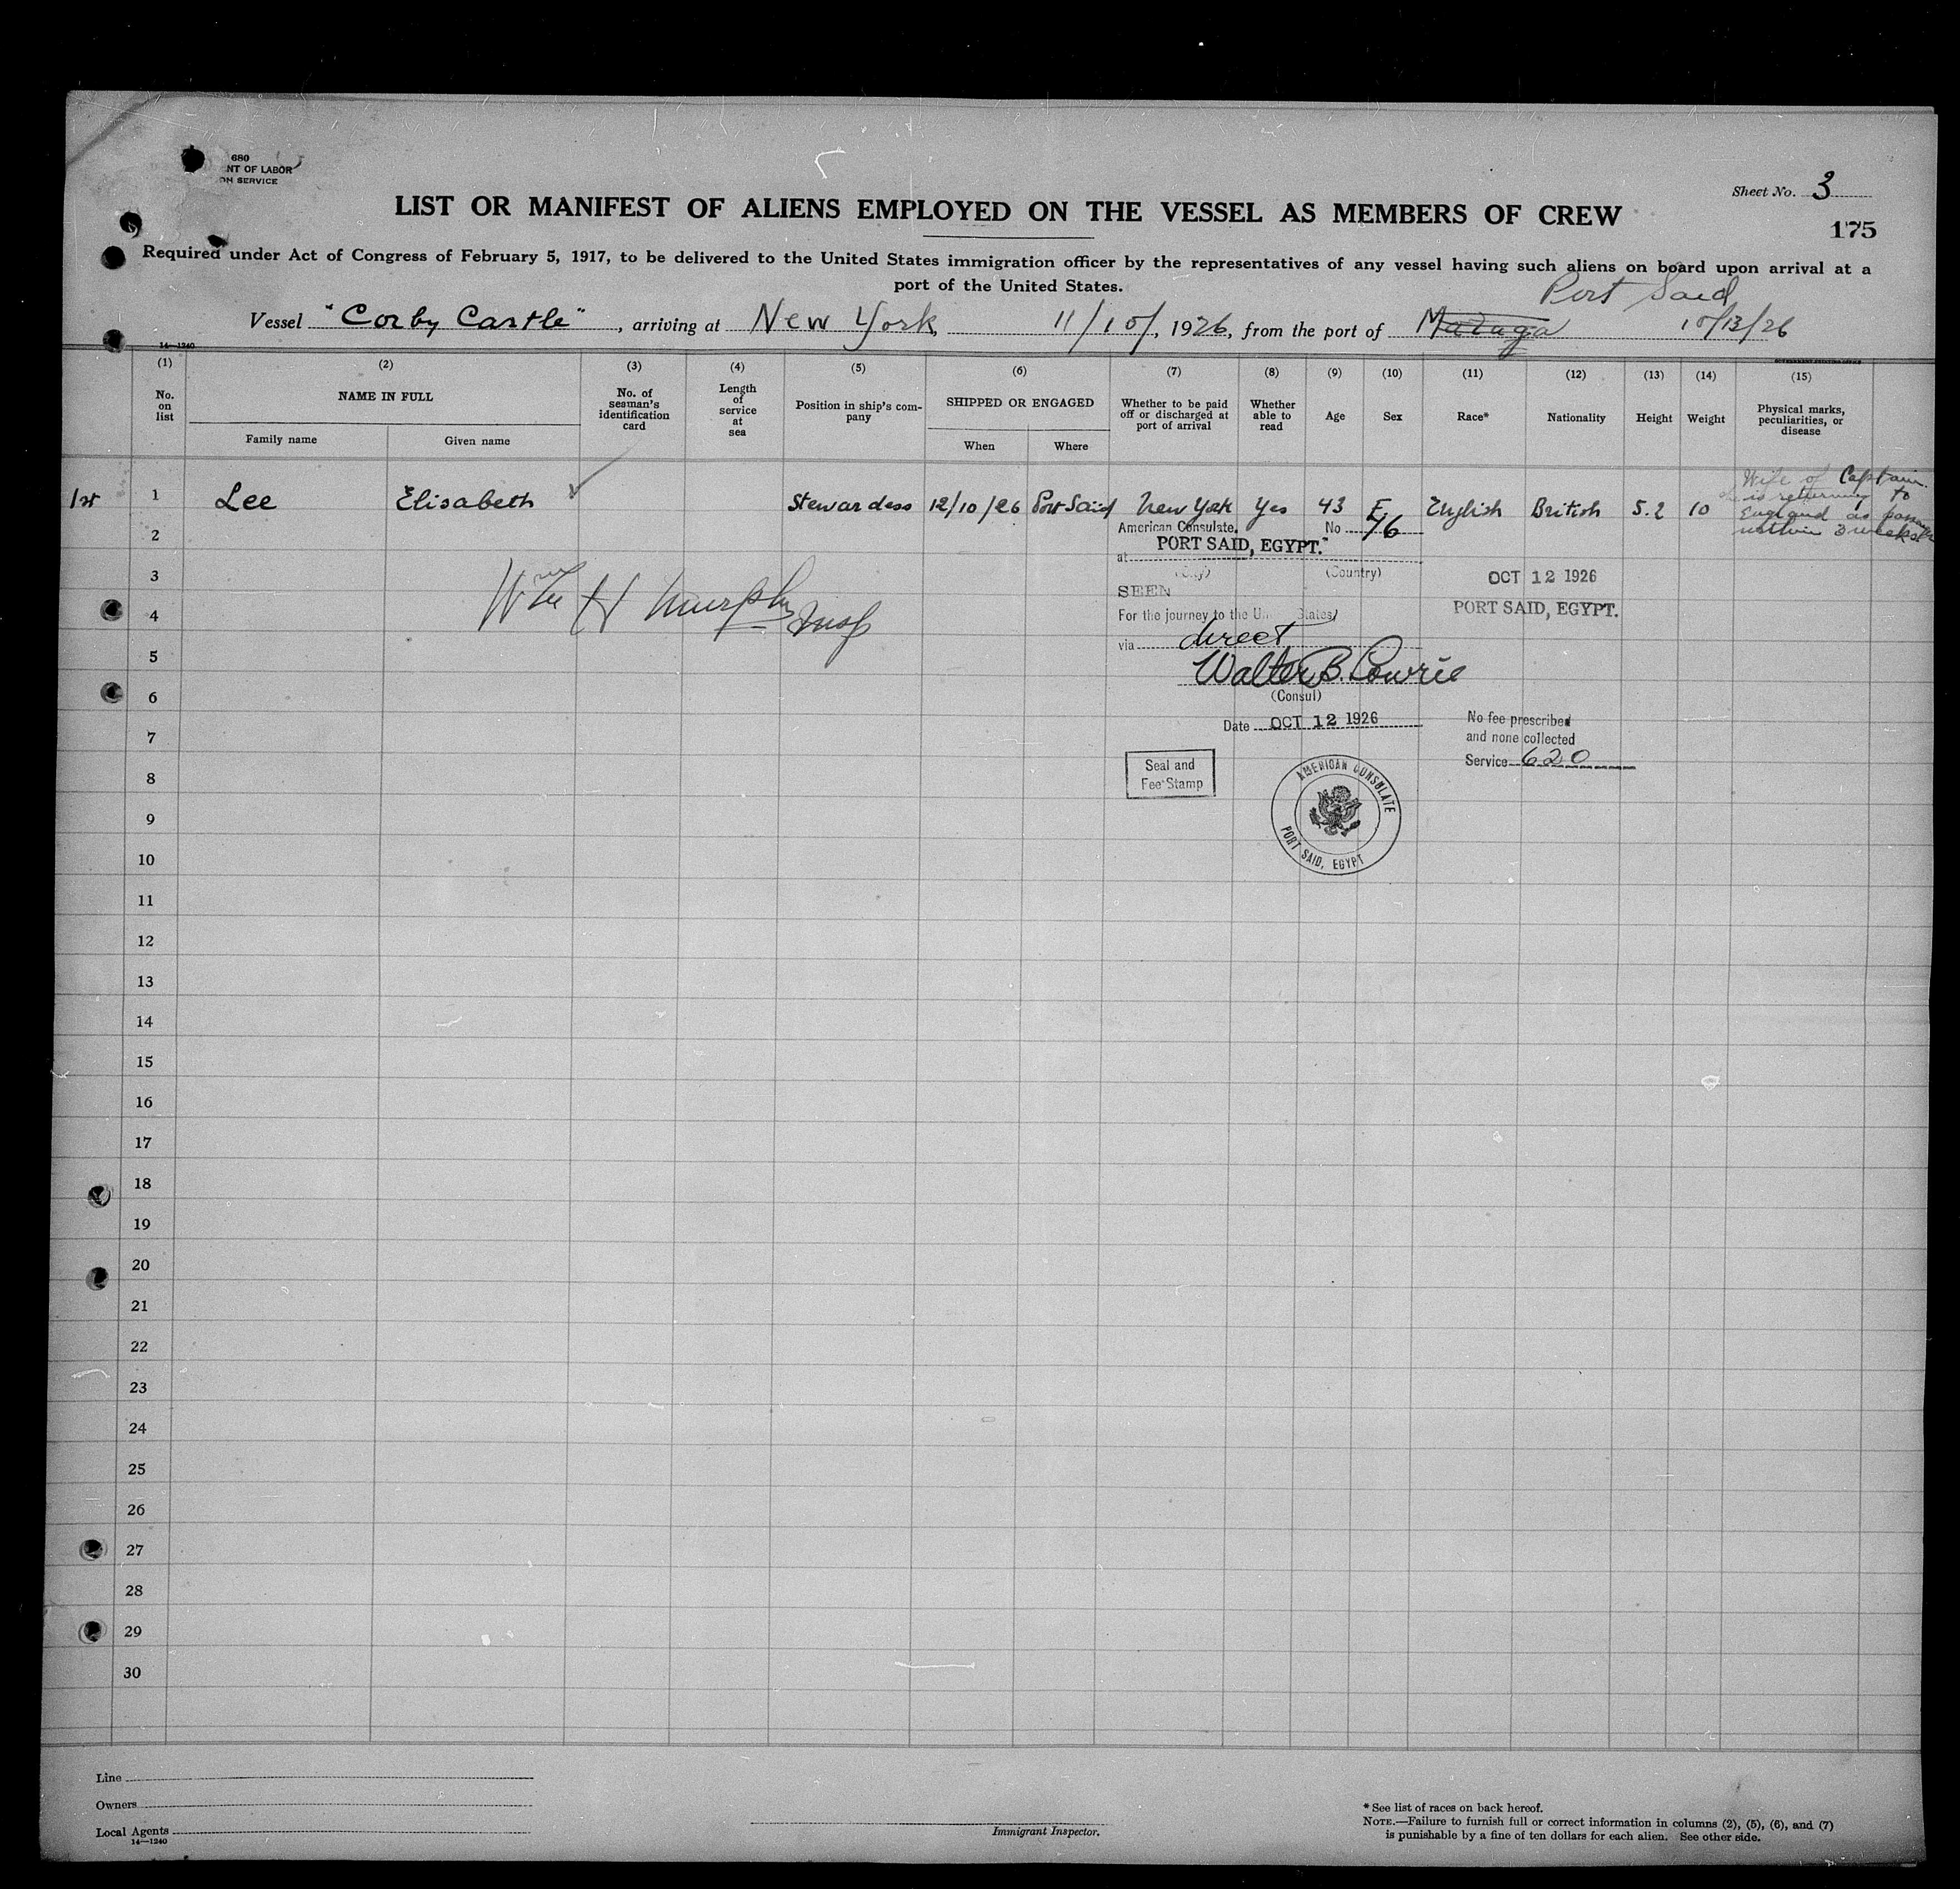 680
NT OF LABOR
ON SERVICE
Sheet No. 3
LIST OR MANIFEST OF ALIENS EMPLOYED ON THE VESSEL AS MEMBERS OF CREW
175
Required under Act of Congress of February 5, 1917, to be delivered to the United States immigration officer by the representatives of any vessel having such aliens on board upon arrival at a
port of the United States.
Port Said
Vessel "Corby Castle", arriving at New York, 11/10/, 1926, from the port of 10/13/26
14—1240
GOVERNMENT PRINTING OFFICE
(1) (2) (3) (4) (5) (6) (7) (8) (9) (10) (11) (12) (13) (14) (15)
No. on list
NAME IN FULL
Family name Given name
No. of seaman's identification card
Length of service at sea
Position in ship's com-pany
SHIPPED OR ENGAGED
When Where
Whether to be paid off or discharged at port of arrival
Whether able to read
Age
Sex
Race*
Nationality
Height
Weight
Physical marks, peculiarities, or disease
1st 1 Lee Elisabeth Stewardess 12/10/26 Port Said New York Yes 43 F English British 5.2 10
Wife of Captain.
is returning to
England as
within 3 weeks
American Consulate, No 76
2
at PORT SAID, EGYPT.
3
(City) (Country)
OCT 12 1926
SEEN
PORT SAID, EGYPT.
Wm H Murphy Insp
4
For the journey to the Un States/
via direct
5
Walter B. Lowrie
6
(Consul)
Date OCT 12 1926
No fee prescribed
7
and none collected
Service 620
Seal and
Fee Stamp
8
AMERICAN CONSULATE
PORT SAID, EGYPT
9
10
11
12
13
14
15
16
17
18
19
20
21
22
23
24
25
26
27
28
29
30
Line
Owners
Local Agents
14—1240
Immigrant Inspector.
* See list of races on back hereof.
NOTE.—Failure to furnish full or correct information in columns (2), (5), (6), and (7)
is punishable by a fine of ten dollars for each alien. See other side.